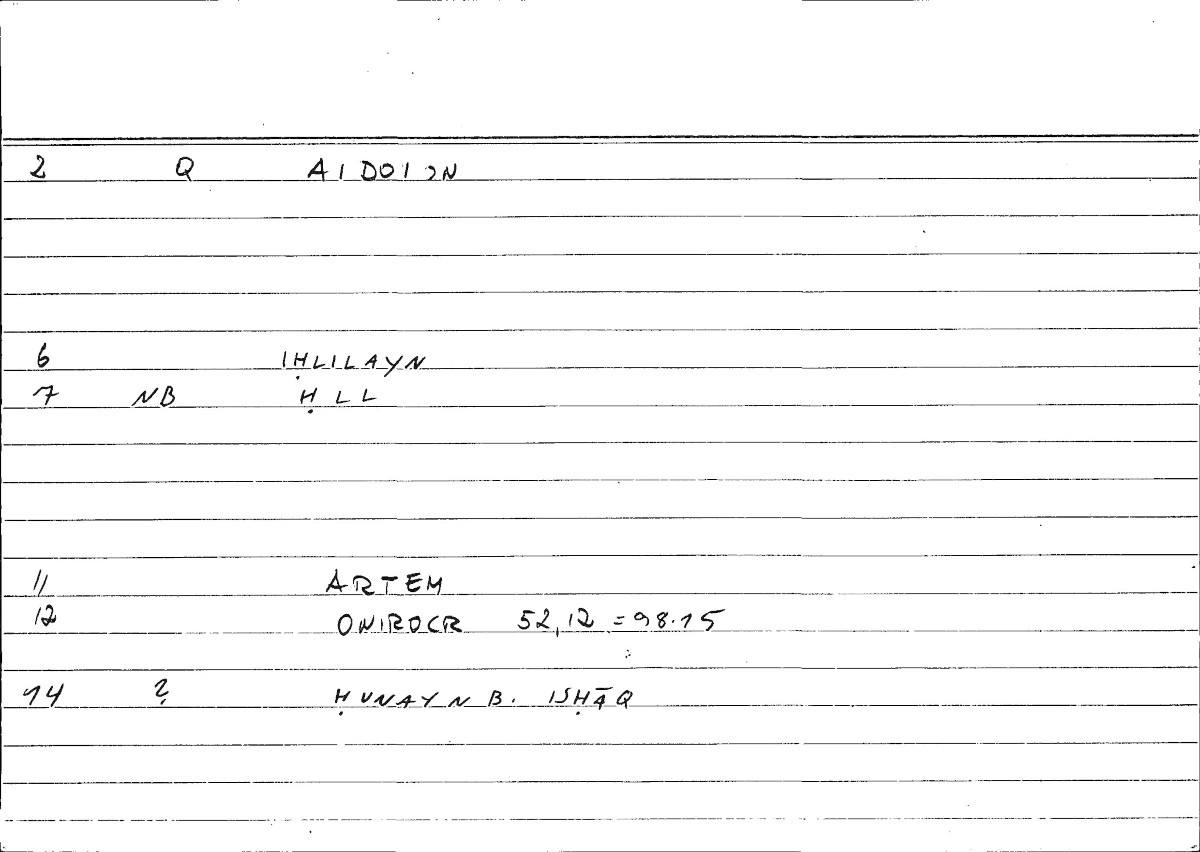 2 Q AIDOION
6 IḤLILAYN
7 NB ḤLL
11 ARTEM
12 ONIROCR 52,12 = 98.15
14 ? ḤUNAYN B. ISḤĀQ